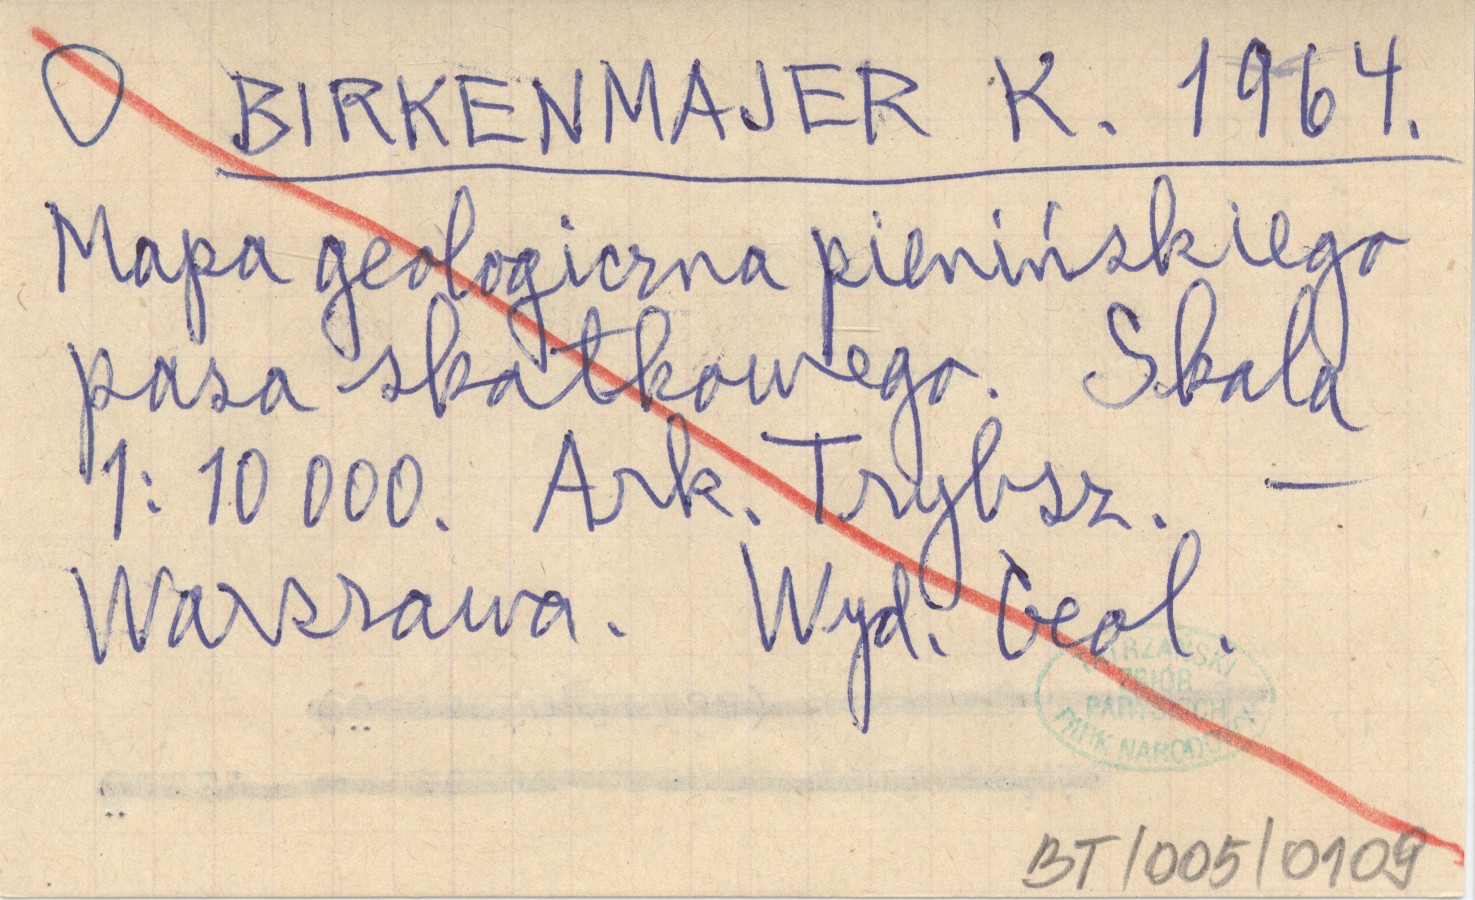 O BIRKENMAJER K. 1964.
Mapa geologiczna pienińskiego
pasa skałkowego. Skala
1: 10 000. Ark. Trybsz. —
Warszawa. Wyd. Geol.
TATRZAŃSKI
ZBIÓR
PARK NARODOWY
BT/005/0109